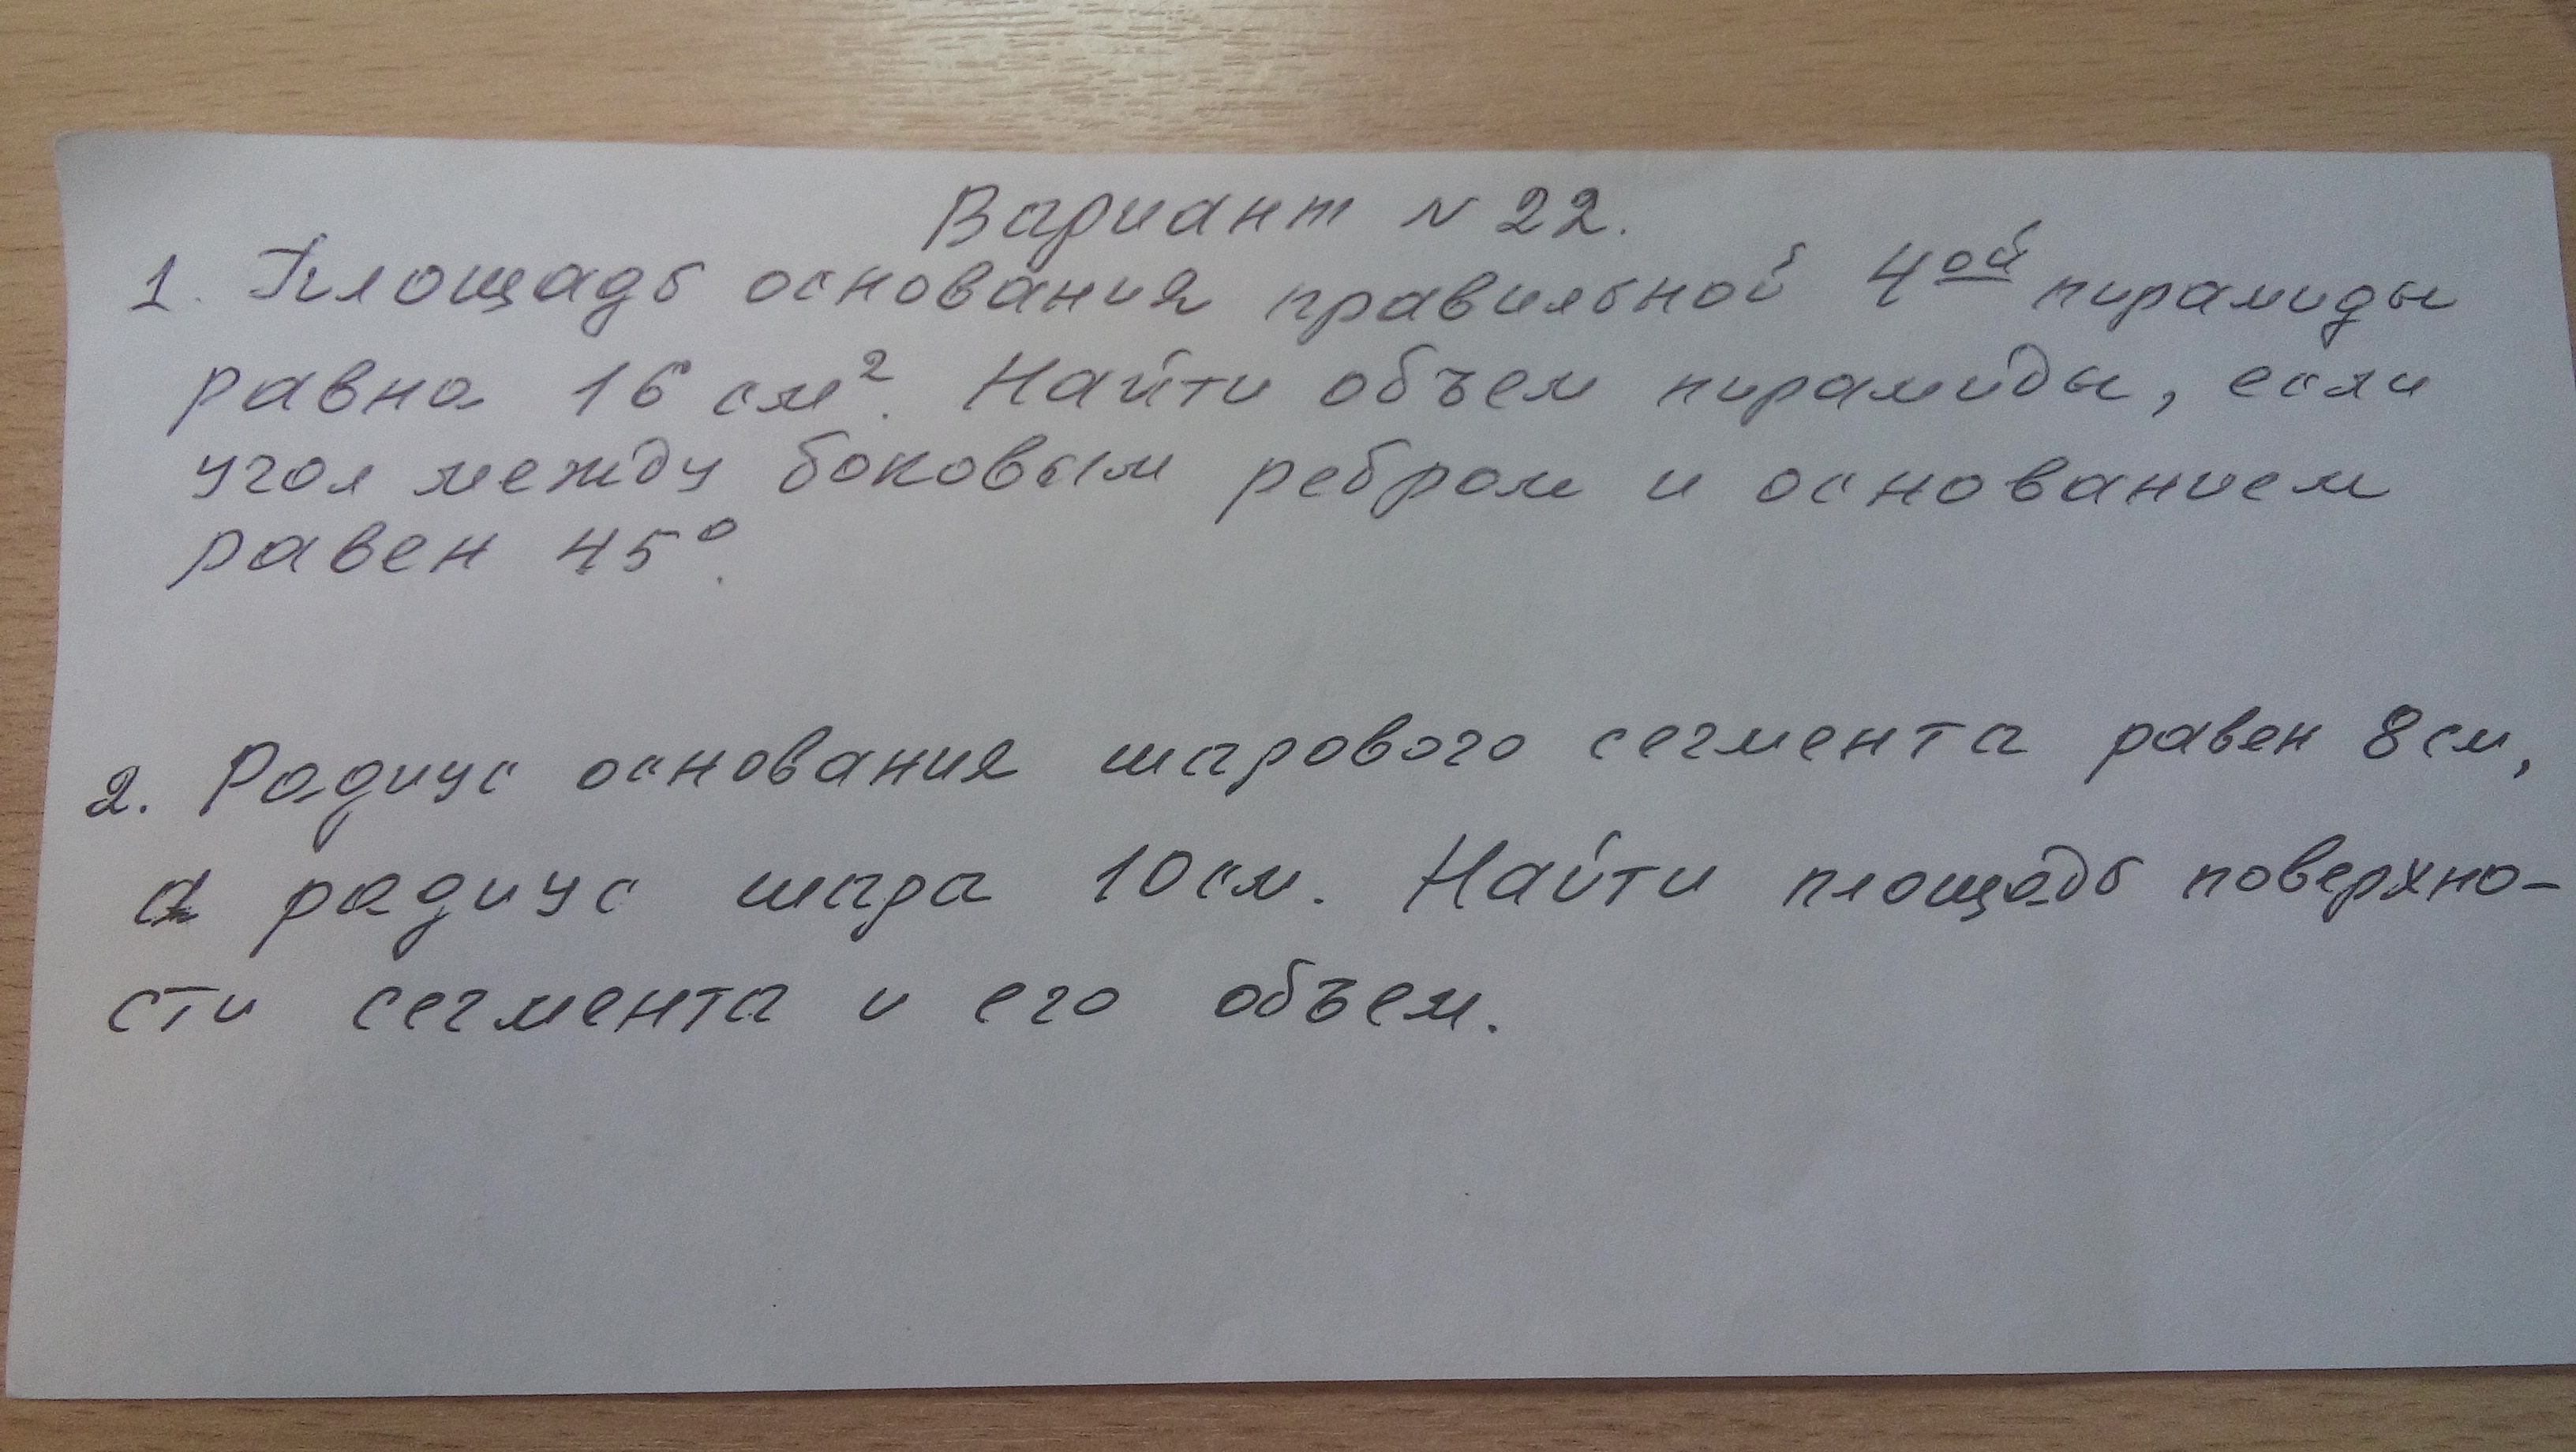 Вариант N 22.
1. Площадь основания правильной 4ой пирамиды
равна 16 см². Найти объем пирамиды, если
угол между боковым ребром и основанием
равен 45°.
2. Радиус основания шарового сегмента равен 8 см,
а радиус шара 10 см. Найти площадь поверхно-
сти сегмента и его объем.